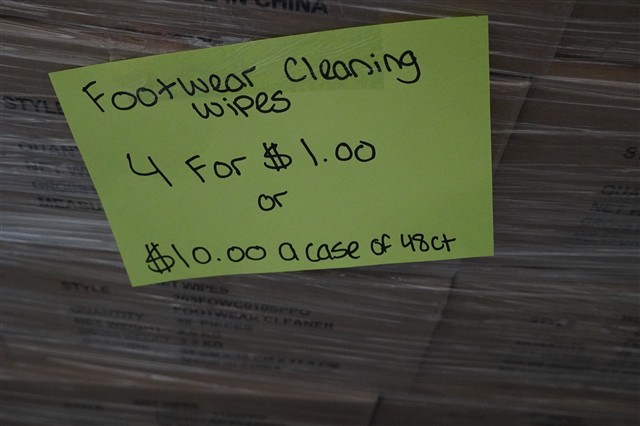 IN CHINA
Footwear Cleaning
wipes
4 For $1.00
or
$10.00 a case of 48ct
STYLE
STYLE
WIPES
QUANTITY
FOOTWEAR CLEANER